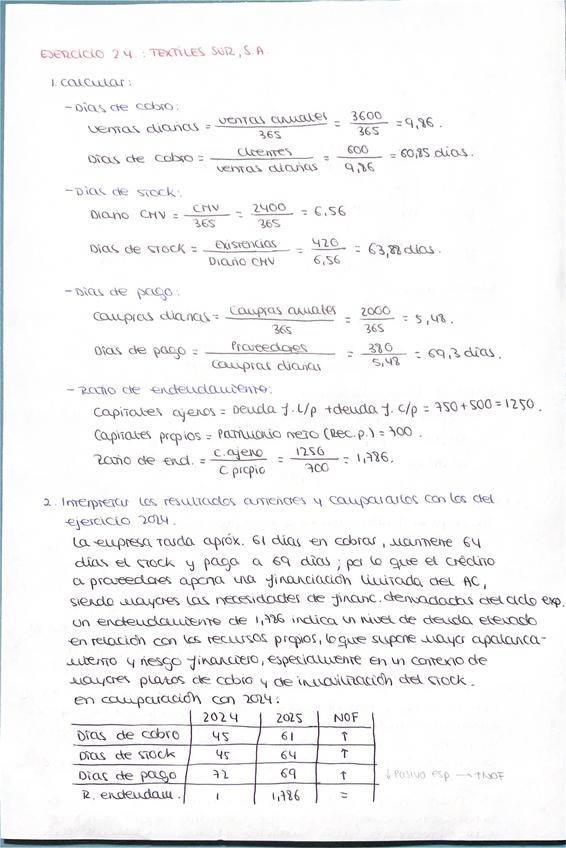 EJERCICIO 2.4.: TEXTILES SUR, S.A.
1. Calcular:
- Días de cobro:
ventas diarias = ventas anuales / 365 = 3600 / 365 = 9,86.
Días de cobro = Clientes / ventas diarias = 600 / 9,86 = 60,85 días.
- Días de stock:
Diario CMV = CMV / 365 = 2400 / 365 = 6,56
Días de stock = Existencias / Diario CMV = 420 / 6,56 = 63,88 días.
- Días de pago:
Compras diarias = Compras anuales / 365 = 2000 / 365 = 5,48.
Días de pago = Proveedores / Compras diarias = 380 / 5,48 = 69,3 días.
- Ratio de endeudamiento:
Capitales ajenos = Deuda f. L/p + deuda f. c/p = 750 + 500 = 1250.
Capitales propios = Patrimonio neto (Rec. p.) = 700.
Ratio de end. = C. ajeno / C propio = 1250 / 700 = 1,786.
2. Interpretar los resultados anteriores y compararlos con los del
ejercicio 2024.
La empresa tarda aprox. 61 días en cobrar, mantiene 64
días el stock y paga a 69 días; por lo que el crédito
a proveedores aporta una financiación limitada del AC,
siendo mayores las necesidades de financ. derivadas del ciclo exp.
un endeudamiento de 1,786 indica un nivel de deuda elevado
en relación con los recursos propios, lo que supone mayor apalanca-
miento y riesgo financiero, especialmente en un contexto de
mayores plazos de cobro y de inmovilización del stock.
en comparación con 2024:
2024 2025 NOF
Días de cobro 45 61 ↑
Días de stock 45 64 ↑
Días de pago 72 69 ↑ ↓ Pasivo esp → ↑NOF
R. endeudam. 1 1,786 =